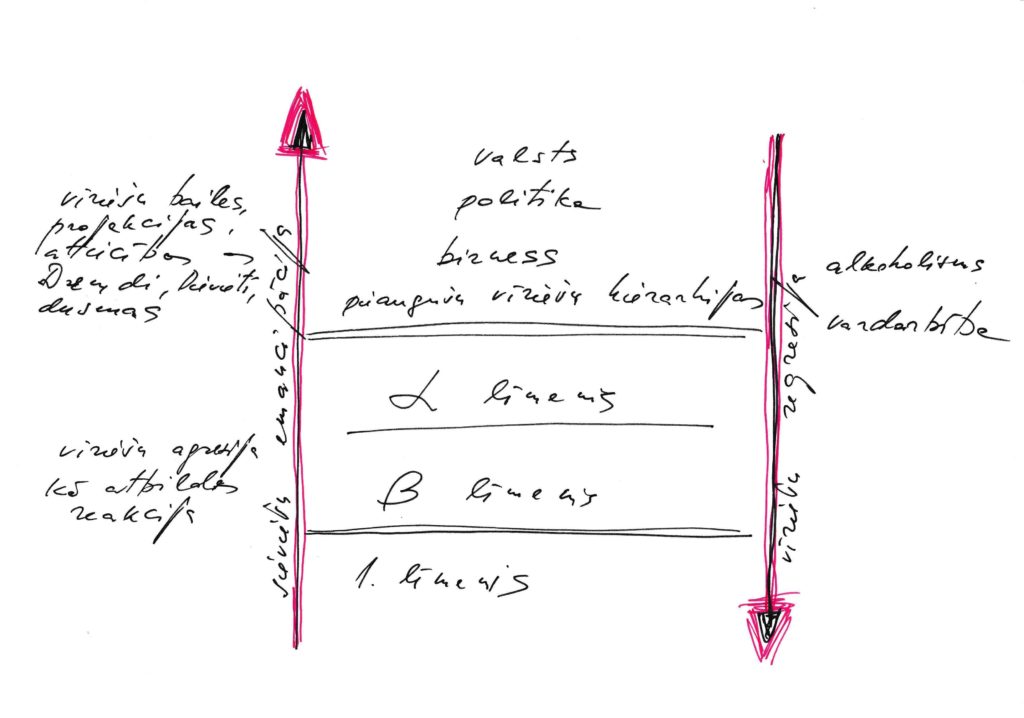 valsts
politika
bizness
pieaugušo vīriešu hierarhijas
vīriešu bailes,
projekcijas,
attiecības
Dzemdi, Krūti,
dusmas
sieviešu emancipācija
vīriešu agresija
kā atbildes
reakcija
α līmenis
β līmenis
1. līmenis
alkoholisms
vardarbība
vīriešu regresija